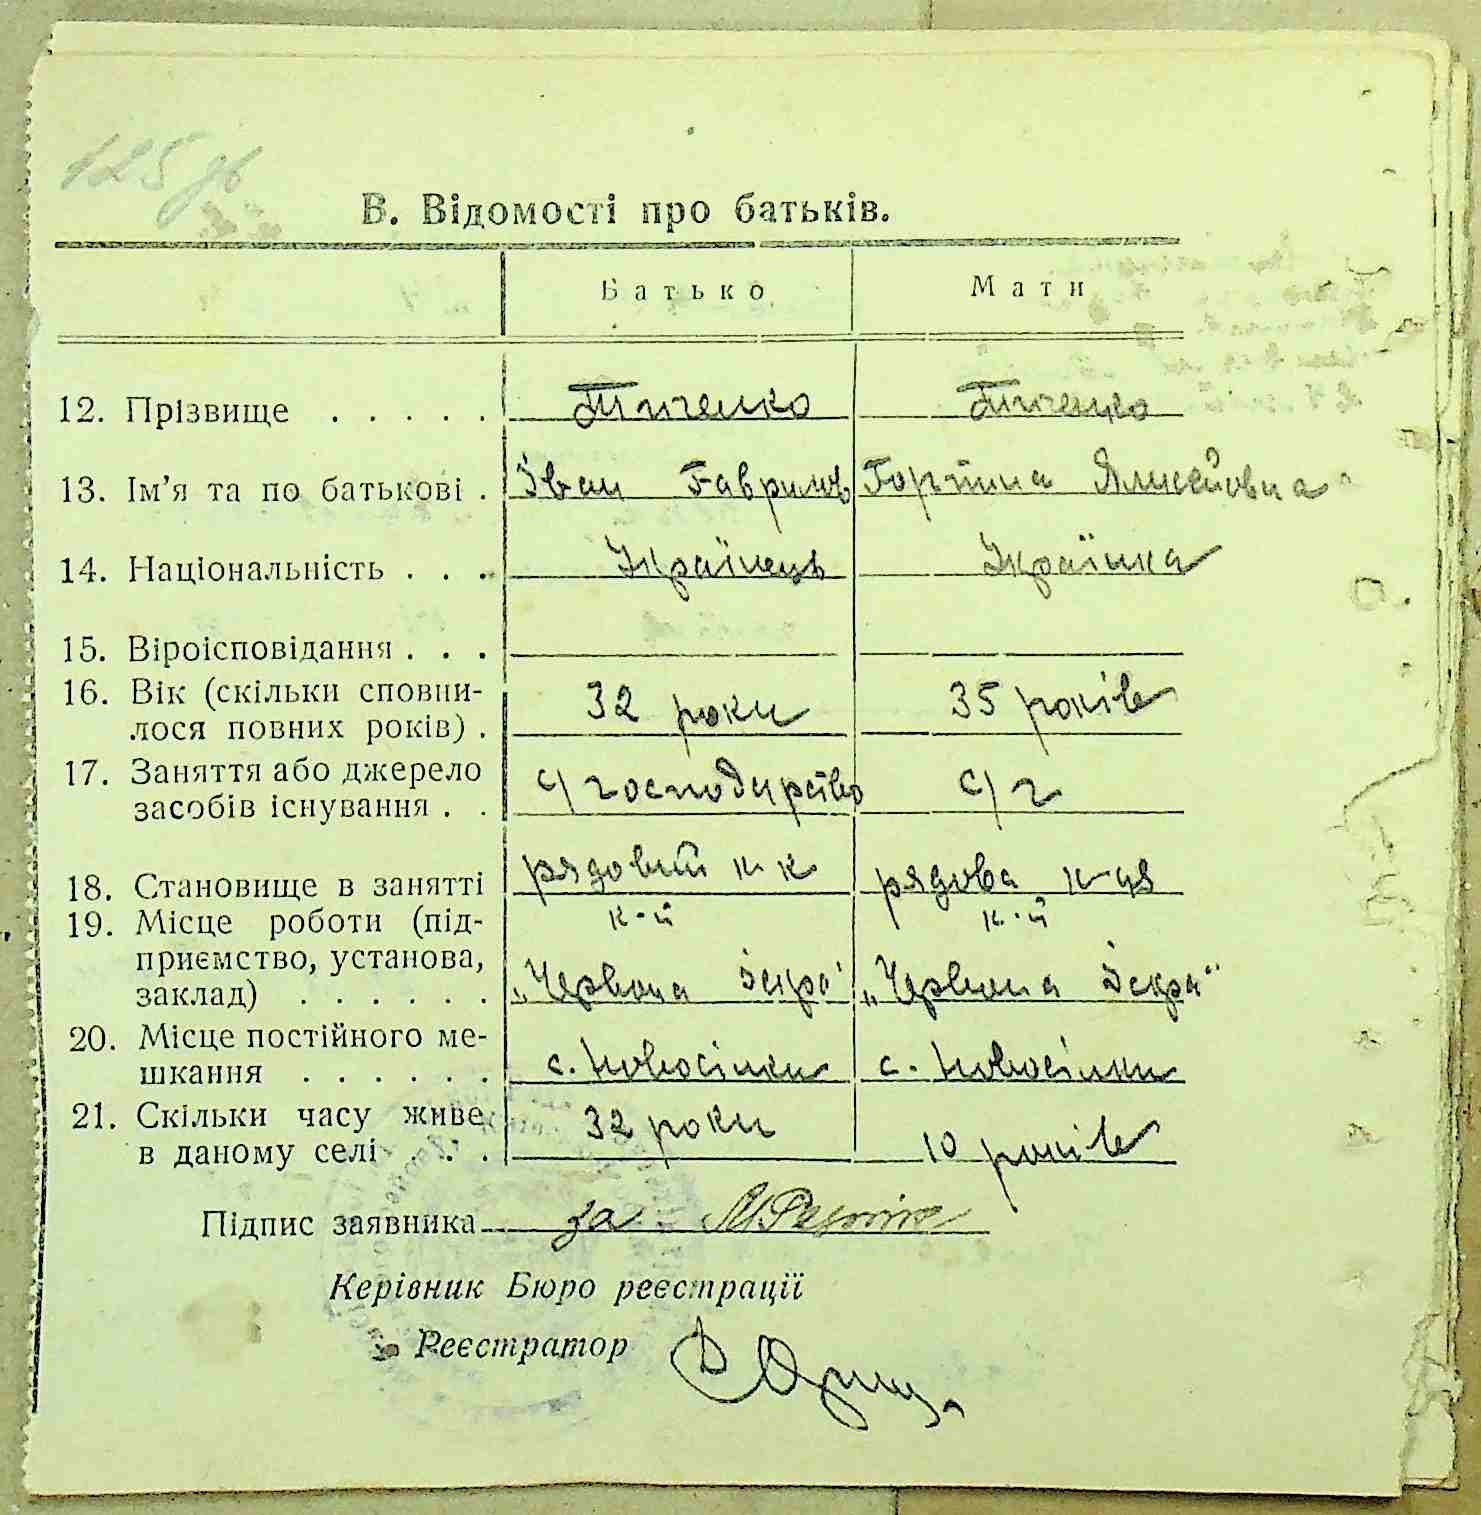 В. Відомості про батьків.
Батько Мати
12. Прізвище . . . . .
13. Ім'я та по батькові . Іван Гаврилов
14. Національність . . . Українець Українка
15. Віроісповідання . . .
16. Вік (скільки сповни-
лося повних років) . 32 роки 35 років
17. Заняття або джерело
засобів існування . . с/господарство с/г
18. Становище в занятті рядовий к-к рядова к-ця
19. Місце роботи (під- к-п к-п
приємство, установа,
заклад) . . . . . . „Червона Іскра" „Червона Іскра"
20. Місце постійного ме-
шкання . . . . . . с. Новосілки с. Новосілки
21. Скільки часу живе
в даному селі . . . 32 роки 10 років
Підпис заявника за
Керівник Бюро реєстрації
Реєстратор